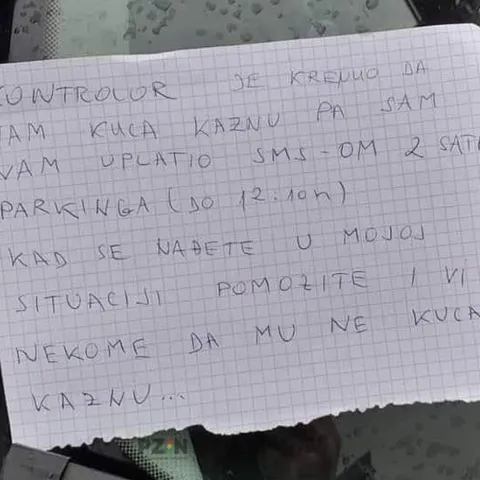 KONTROLOR JE KRENUO DA
VAM KUCA KAZNU PA SAM
VAM UPLATIO SMS-OM 2 SATA
PARKINGA (DO 12:10h)
KAD SE NAĐETE U MOJOJ
SITUACIJI POMOZITE I VI
NEKOME DA MU NE KUCA
KAZNU...